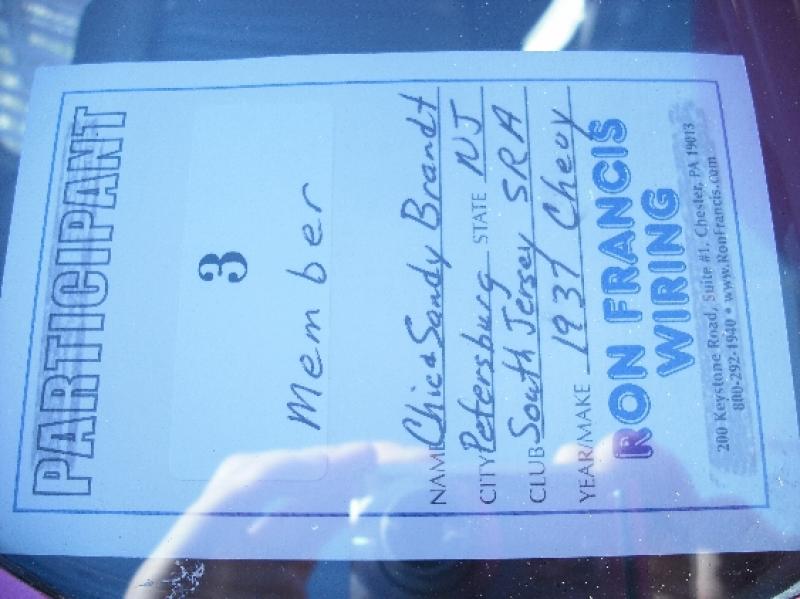 PARTICIPANT
3
Member
NAME Chic & Sandy Brandt
CITY Petersburg STATE NJ
CLUB South Jersey SRA
YEAR/MAKE 1937 Chevy
RON FRANCIS
WIRING
200 Keystone Road, Suite #1, Chester, PA 19013
800-292-1940 • www.RonFrancis.com